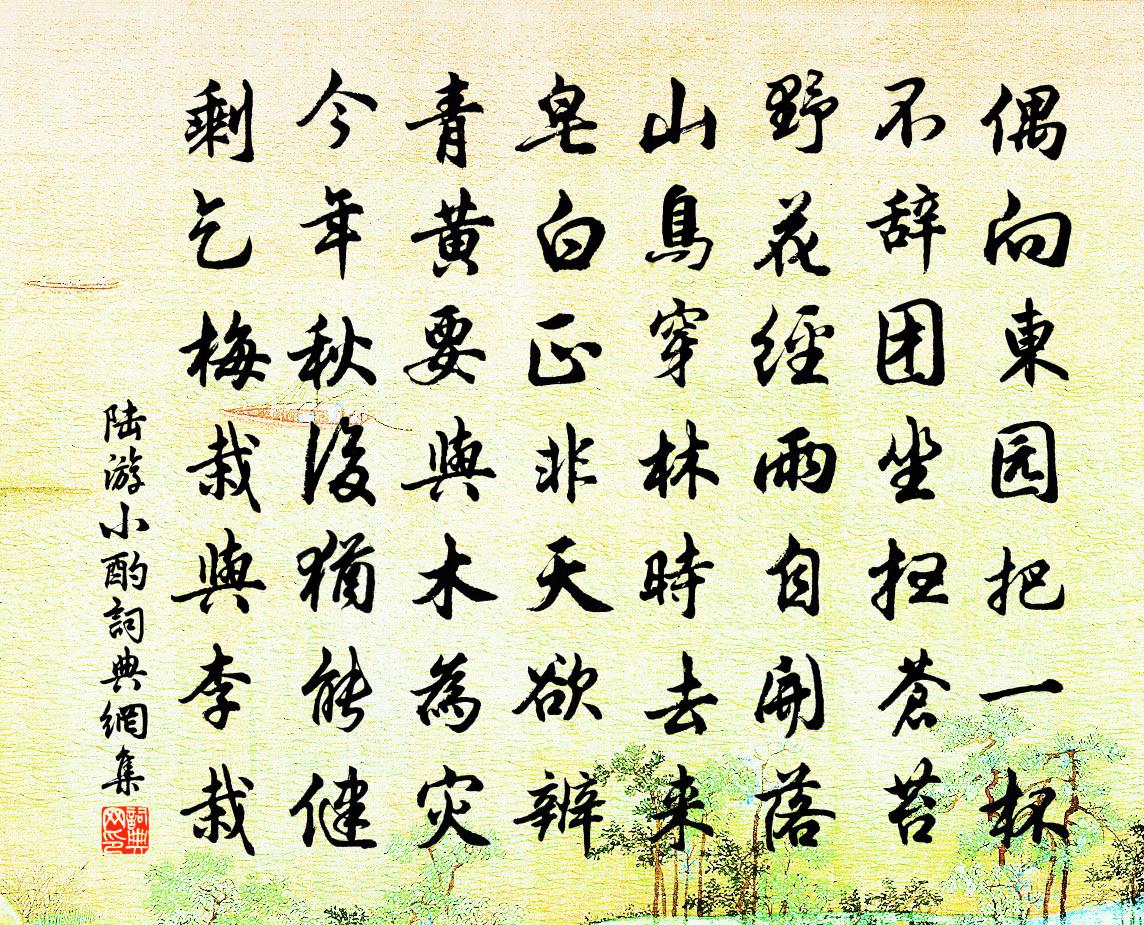 偶向東园把一杯
不辞团坐扫蒼苔
野花經雨自開落
山鳥穿林時去来
皂白正非天欲辨
青黄要與木為灾
今年秋後猶能健
剩乞梅栽與李栽
陆游小酌詞典網集
詞典网印